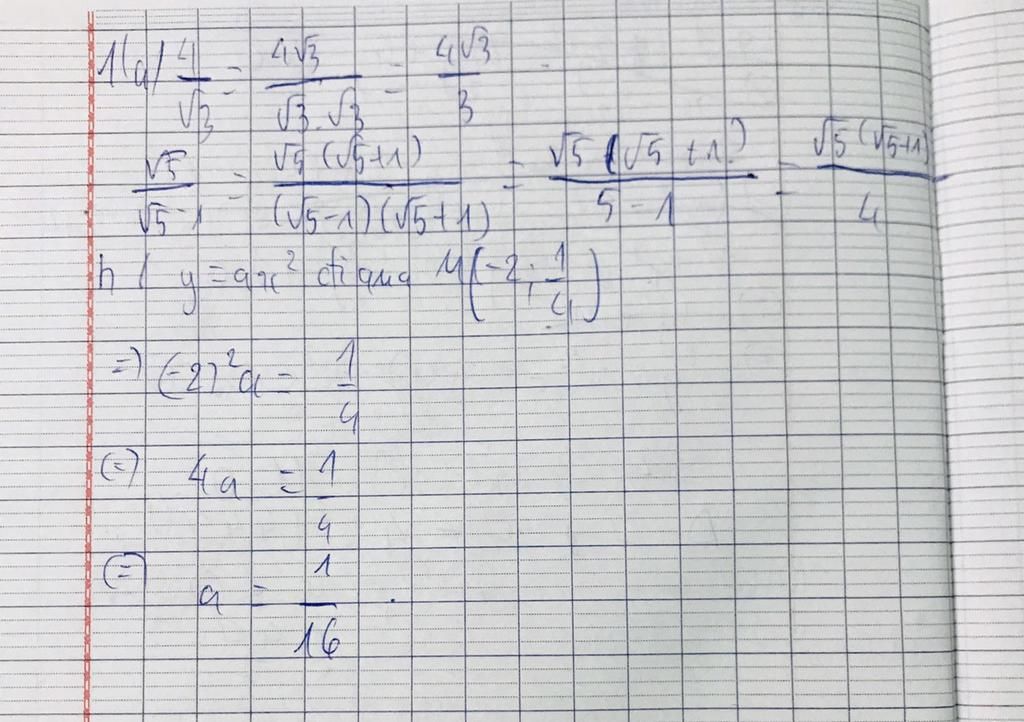 1/a/ 4/√3 = 4√3/√3.√3 = 4√3/3
√5/√5-1 = √5(√5+1)/(√5-1)(√5+1) = √5(√5+1)/5-1 = √5(√5+1)/4
b/ y=ax² đi qua M(-2; 1/4)
=) (-2)²a = 1/4
(=) 4a = 1/4
(=) a = 1/16.